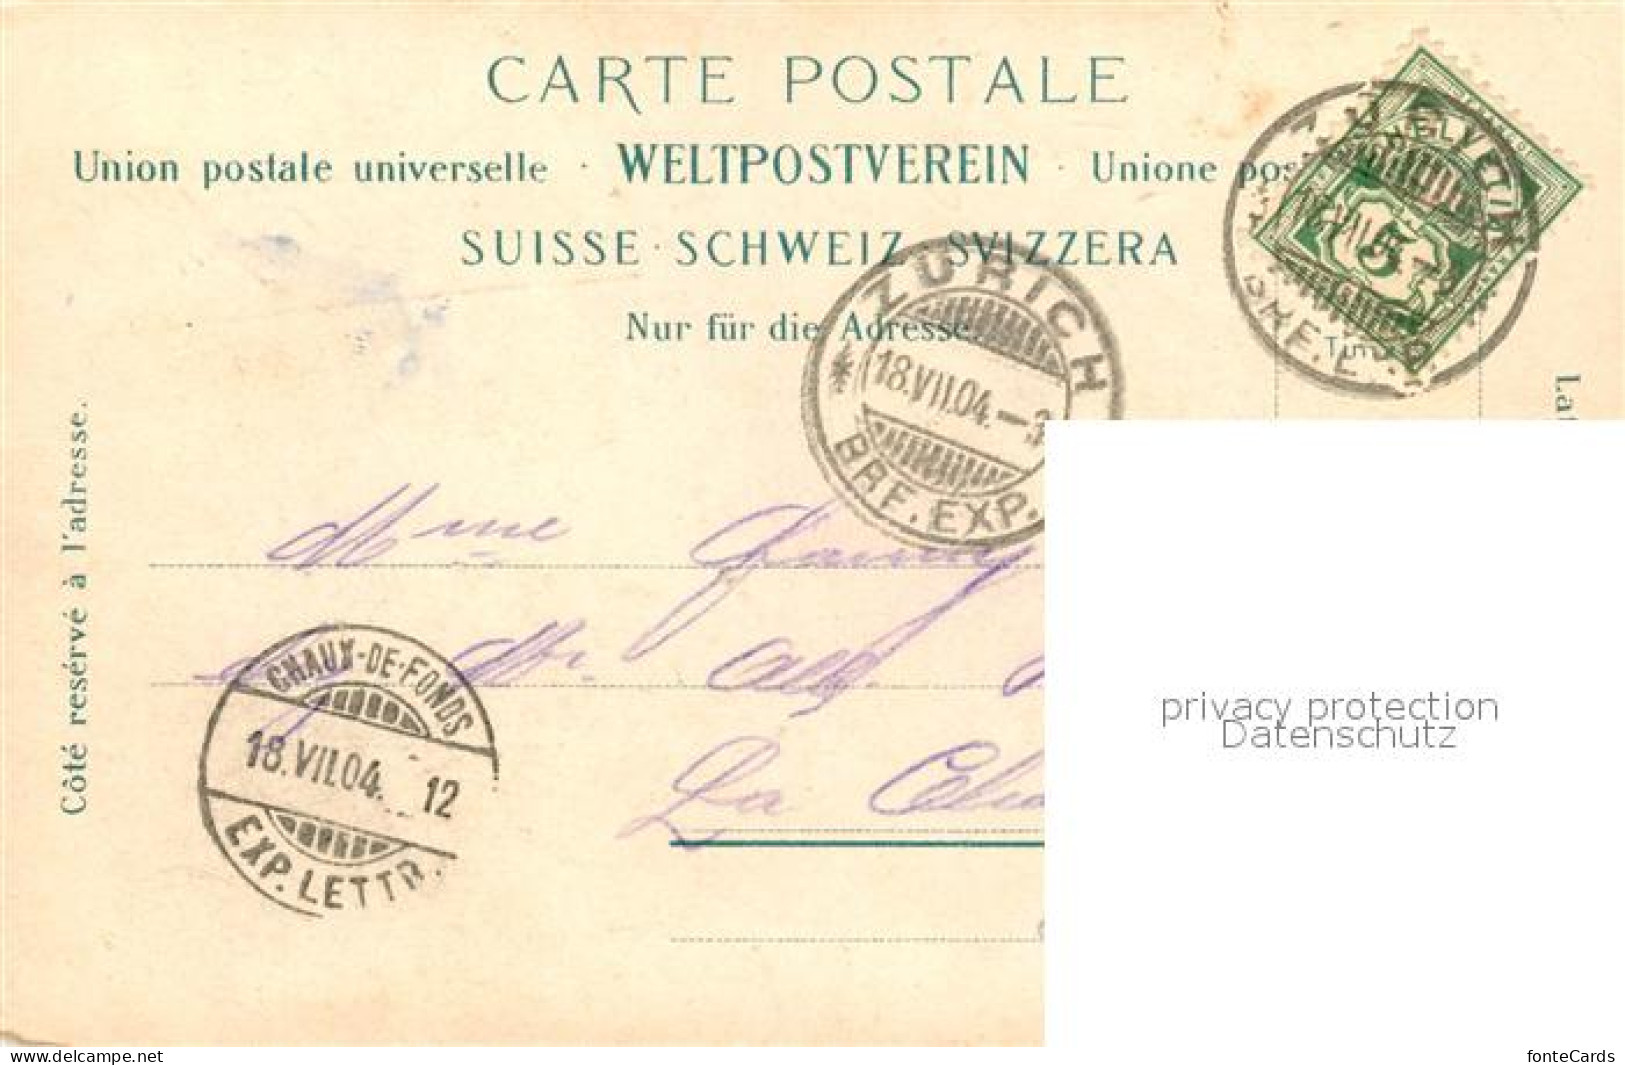 CARTE POSTALE
Union postale universelle · WELTPOSTVEREIN · Unione pos
SUISSE · SCHWEIZ SVIZZERA
Nur für die Adresse.
HELVETIA
5
ZÜRICH
18.VII.04.–3
BRF. EXP.
Côté resérvé à l'adresse.
Lat
Mme
CHAUX-DE-FONDS
18.VII.04. 12
EXP. LETTR.
La
privacy protection
Datenschutz
www.delcampe.net
fonteCards